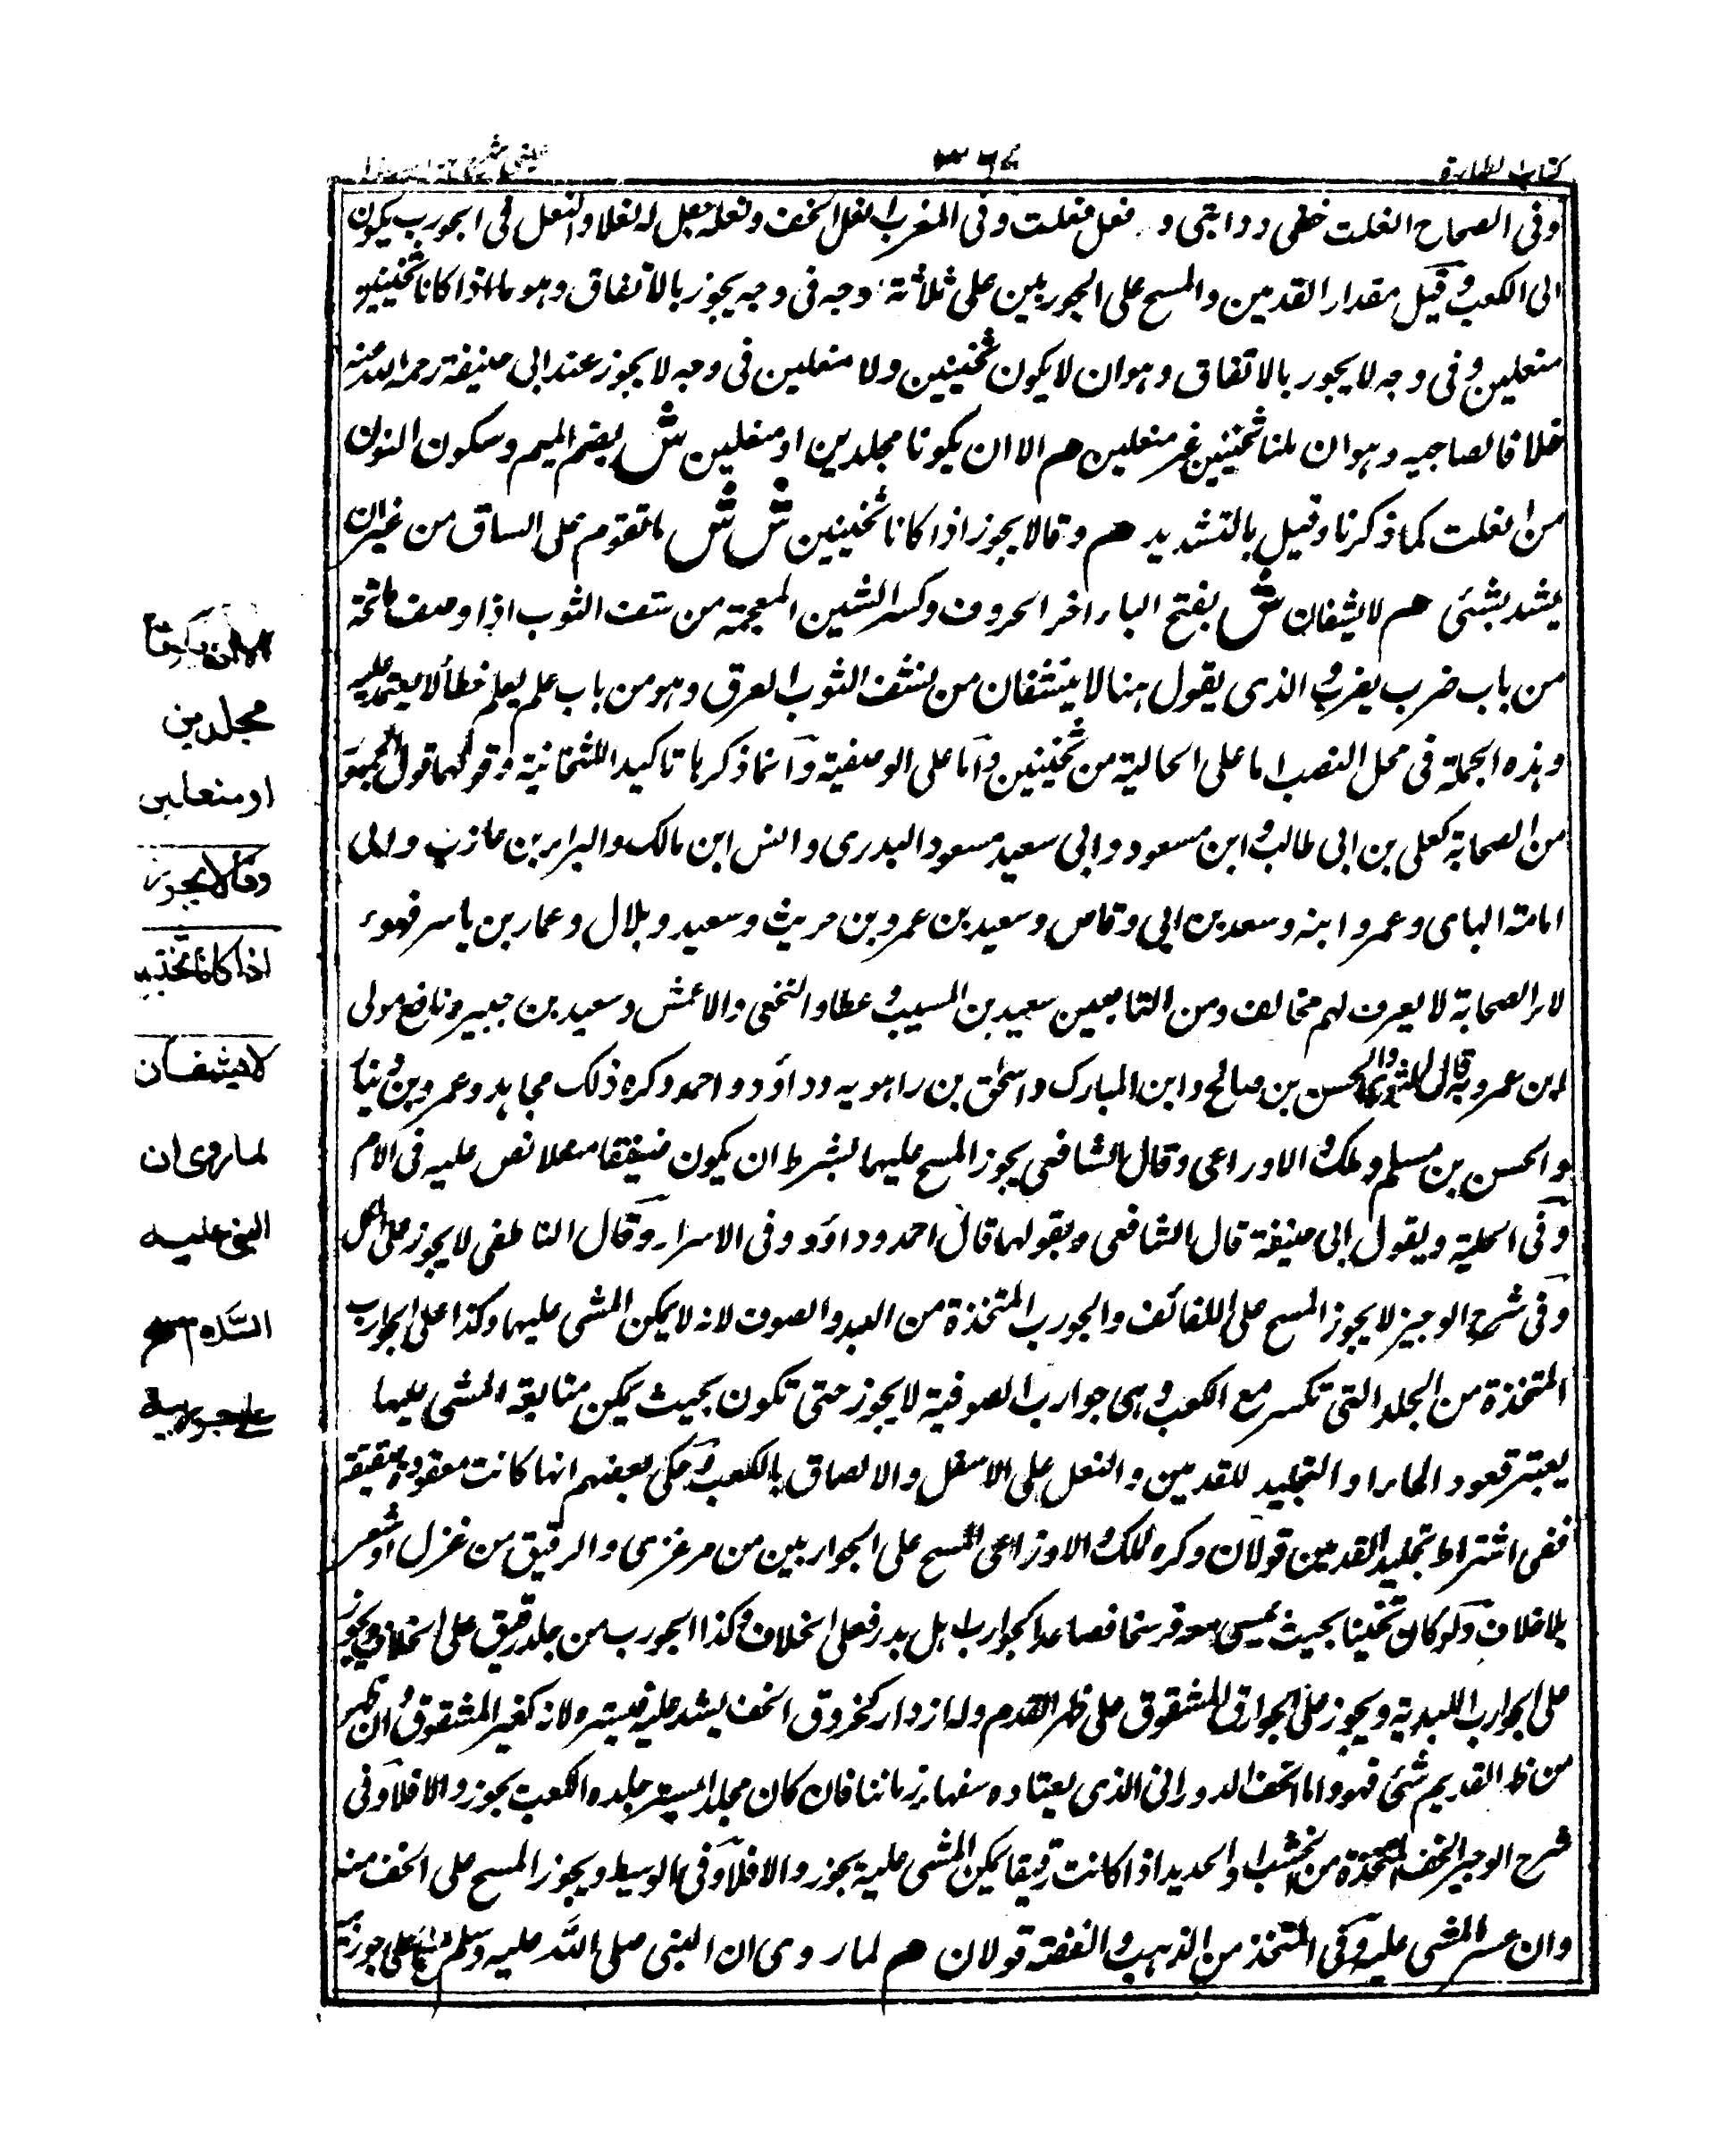 كتاب الطهارة
وفى الصحاح انعلت خفى ودابتى و فعل منعلت وفى المغرب انعل الخف ونعله جعل له نعلا والنعل فى الجورب يكون
الى الكعب وقيل مقدار القدمين والمسح على الجوربين على ثلاثة وجه فى وجه يجوز بالاتفاق وهو ما اذا كانا ثخينين
منعلين وفى وجه لا يجوز بالاتفاق وهو ان لا يكون ثخينين ولا منعلين فى وجه لا يجوز عند ابى حنيفة رحمه الله
خلافا لصاحبيه وهو ان ثخينين غير منعلين هم الا ان يكونا مجلدين او منعلين ش بضم الميم وسكون النون
من انعلت كما ذكرنا وقيل بالتشديد هم وقالا يجوز اذا كانا ثخينين ش ش ما تقوم على الساق من غير ان
يشد بشئى هم لا يشفان ش بفتح الياء اخر الحروف وكسر الشين المعجمة من شف الثوب اذا وصف ما تحته
من باب ضرب يضرب والذى يقول هنا لا ينشفان من نشف الثوب العرق وهو من باب علم يعلم خطأ لا يعتمد عليه
وهذه الجملة فى محل النصب اما على الحالية من ثخينين واما على الوصفية وانما ذكرها تاكيدا للثخانية وقولهما قول الجمهور
من الصحابة كعلى بن ابى طالب وابن مسعود وابى سعيد مسعود البدرى وانس ابن مالك والبراء بن عازب وابى
امامة الباهلى وعمرو ابنه وسعد بن ابى وقاص وسعيد بن عمرو بن حريث وسعيد وبلال وعمار بن ياسر فهوء
لاء الصحابة لا يعرف لهم مخالف ومن التابعين سعيد بن المسيب وعطا والنخعى والاعمش وسعيد بن جبير ونافع مولى
ابن عمر وبه قال الثورى والحسن بن صالح وابن المبارك واسحق بن راهويه وداؤد واحمد وكره ذلك مجاهد وعمرو بن دينار
والحسن بن مسلم وملك والاوزاعى وقال الشافعى يجوز المسح عليهما بشرط ان يكون صفيقا منعلا نص عليه فى الام
وفى الحلية وبقول ابى حنيفة قال الشافعى وبقولهما قال احمد وداؤد وفى الاسرار وقال الناطفى لا يجوز على الكل
وفى شرح الوجيز لا يجوز المسح على اللفائف والجورب المتخذة من اللبد والصوف لانه لا يمكن المشى عليهما وكذا على الجوارب
المتخذة من الجلد التى تكسر مع الكعب وهى جوارب الصوفية لا يجوز حتى تكون بحيث يمكن متابعة المشى عليها
يعتبر قعود الماء او التجليد للقدمين والنعل على الاسفل والالصاق بالكعب وحكى بعضهم انها كانت معقودة
ففى اشتراط تجليد القدمين قولان وكره ملك والاوزاعى المسح على الجواربين من مرغزى والرقيق من غزل او شعر
بلا خلاف ولو كان ثخينا بحيث يمشى معه فرسخا فصاعدا كجوارب اهل بدر فعلى الخلاف وكذا الجورب من جلد رقيق على الخلاف ويجوز
على الجوارب اللبدية ويجوز على الجوارق المشقوق على ظهر القدم وله ازرار كخروق الخف يشد عليه فيستره ولانه كغير المشقوق وان ظهر
من ظهر القديم شئى فهو واما الخف الدورانى الذى يعتاده سفهاء زماننا فان كان مجلدا يستر جلده الكعب يجوز والا فلا وفى
شرح الوجيز الخف المتخذة من الخشب او الحديد اذا كانت رقيقا يمكن المشى عليه يجوز والا فلا وفى الوسيط ويجوز المسح على الخف منه
وان عسر المشى عليه وفى المتخذ من الذهب والفضة قولان هم لما روى ان النبى صلى الله عليه وسلم مسح على جوربيه
الا ان يكونا
مجلدين
او منعلين
وقالا يجوز
اذا كانا ثخينين
لا يشفان
لما روى ان
النبى عليه
السلام مسح
على جوربيه